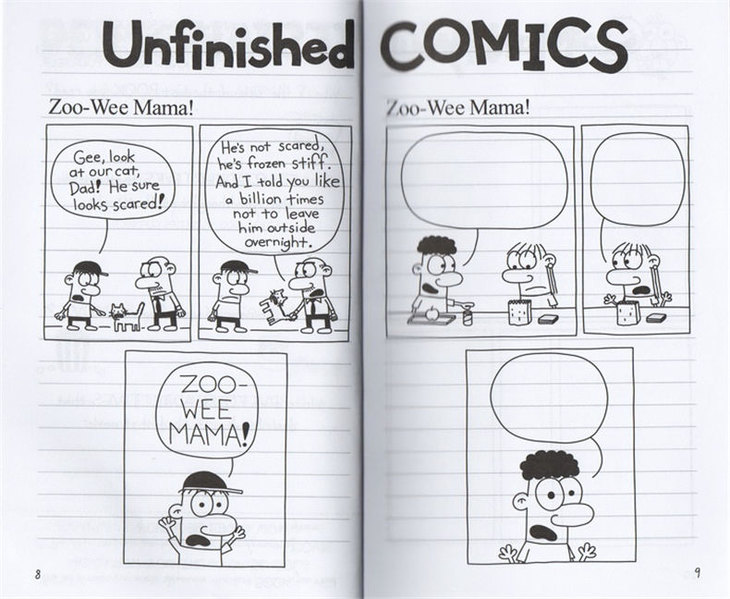 Unfinished COMICS
Zoo-Wee Mama!
Gee, look
at our cat,
Dad! He sure
looks scared!
He's not scared,
he's frozen stiff.
And I told you like
a billion times
not to leave
him outside
overnight.
ZOO-
WEE
MAMA!
8
Zoo-Wee Mama!
9